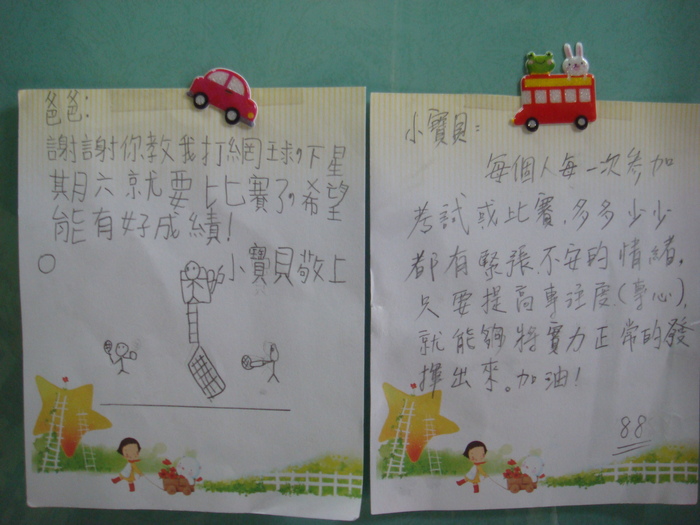 爸爸:
謝謝你教我打網球,下星
期六就要比賽了。希望
能有好成績!
小寶貝敬上
小寶貝:
每個人每一次參加
考試或比賽,多多少少
都有緊張、不安的情緒,
只要提高專注度(專心),
就能夠將實力正常的發
揮出來。加油!
88